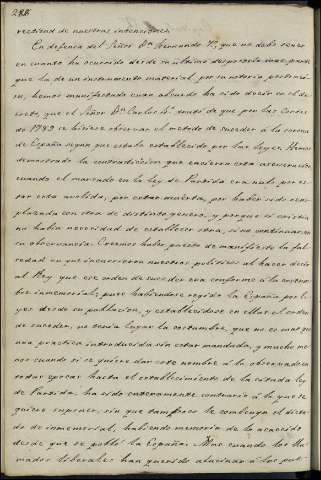 288
rectitud de nuestras intenciones.
En defensa del Señor Dn. Fernando 7º, que no debe tener
en cuanto ha ocurrido desde su último desposorio mas parte
que la de un instrumento material, por su notoria postracion,
hemos manifestado cuan absurdo ha sido decir en el de-
creto, que el Señor Dn. Carlos 4º trató de que por las Cortes
de 1789 se hiciese observar el metodo de suceder á la corona
de España segun que estaba establecido por las leyes. Hemos
demostrado la contradiccion que encierra esta asercion
cuando el marcado en la ley de Partida era nulo por es-
tar esta abolida, por estar muerta, por haber sido reem-
plazada con otra de distinto genero, y porque si existia
no habia necesidad de establecer otra, si no continuar en
su observancia. Creemos haber puesto de manifiesto la fal-
sedad en que incurrieron nuestros politicos al hacer decir
al Rey que ese orden de suceder era conforme á la costum-
bre inmemorial; pues habiendose regido la España por le-
yes desde su poblacion, y estableciendose en ellas el orden
de suceder, no tenia lugar la costumbre, que no es mas que
una practica introducida sin estar mandada, y mucho me-
nos cuando si se quiere dar este nombre á la observada en
todas epocas hasta el establecimiento de la citada ley
de Partida ha sido enteramente contraria á la que se
quiere suponer, sin que tampoco le combenga el dicta-
do de inmemorial, habiendo memoria de lo acaecido
desde que se pobló la España. Mas cuando los lla-
mados liberales han querido alucinar á los